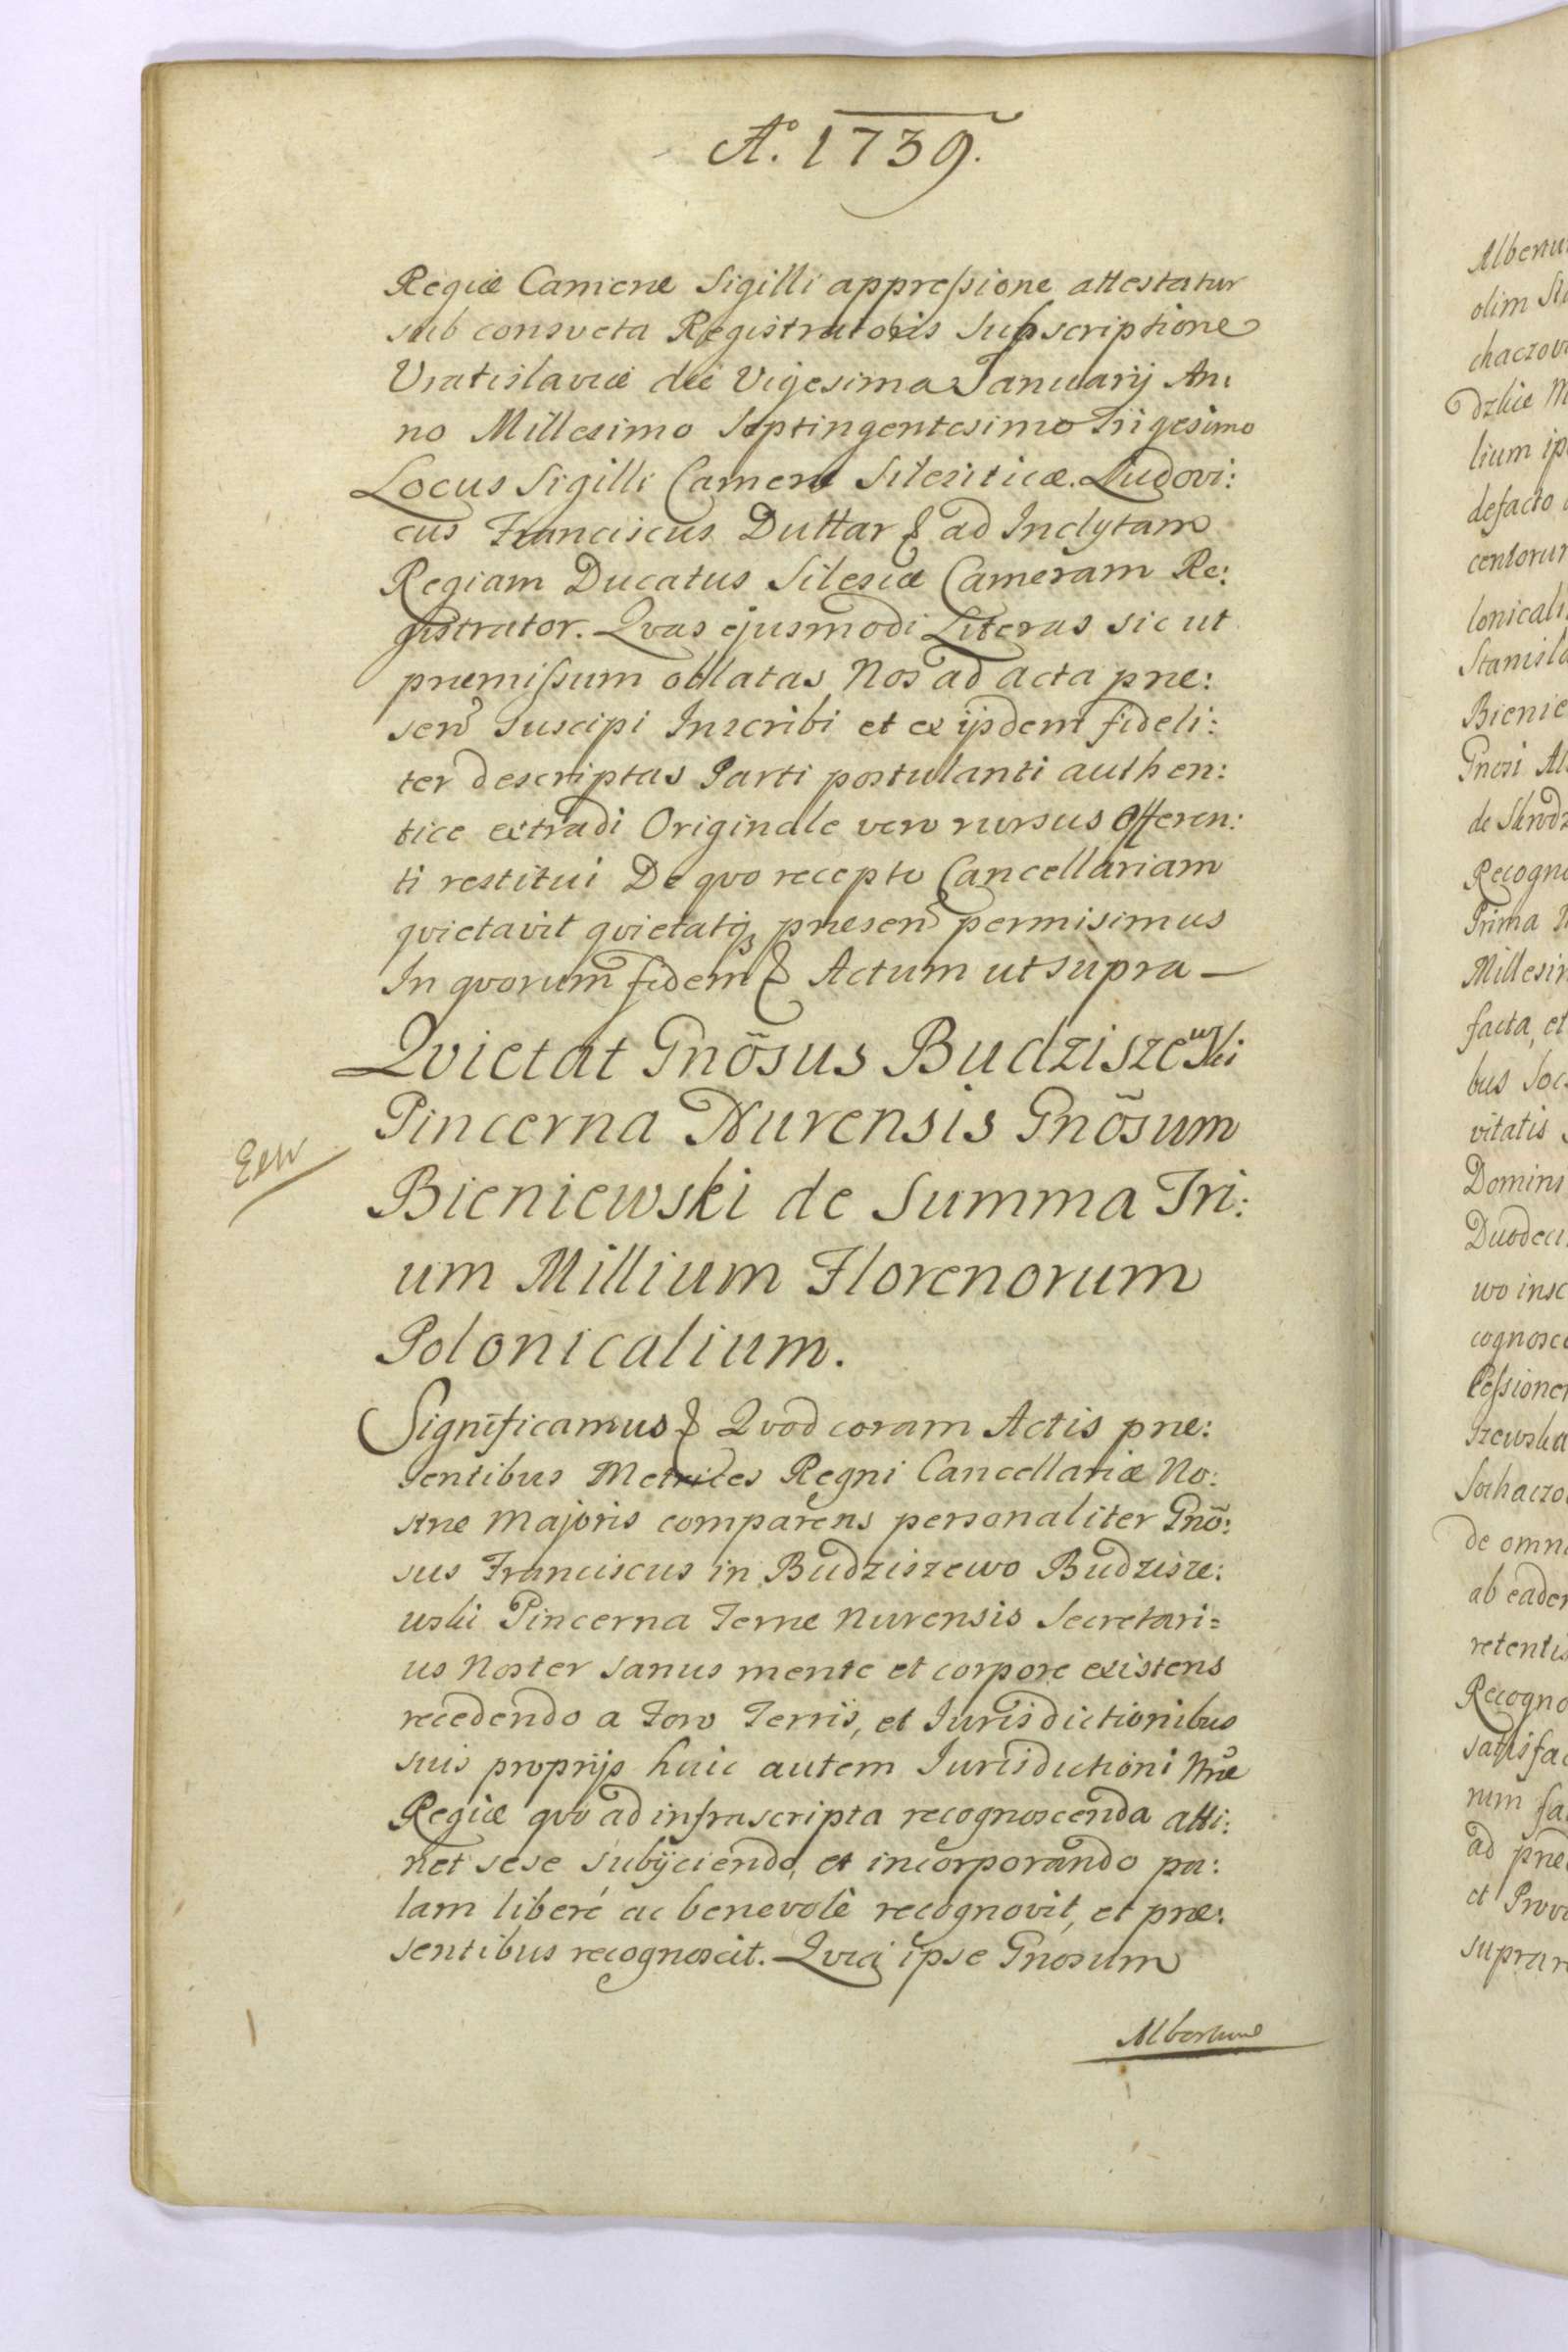 Aº. 1739.
Regiæ Cameræ Sigilli appressione attestatur
sub consveta Registratoris Subscriptione
Vratislaviæ die Vigesima Januarij An:
no Millesimo Septingentesimo Trigesimo
Locus Sigilli Cameræ Silesiticæ. Ludovi:
cus Franciscus Duttar & ad Inclytam
Regiam Ducatus Silesiæ Cameram Re:
gistrator. Qvas ejusmodi Literas sic ut
præmissum oblatas Nos ad acta præ:
sen͂ suscipi Inscribi et ex ijsdem fideli:
ter descriptas Parti postulanti authen:
tice extradi Originale vero rursus Offeren:
ti restitui De qvo recepto Cancellariam
qvietavit qvietatq₃ præsen͂ permisimus
In qvorum fidem & Actum ut supra —
Qvietat Gnõsus Budziszewski
Pincerna Nurensis Gnõsum
Bieniewski de Summa Tri:
um Millium Florenorum
Polonicalium.
Significamus & Qvod coram Actis præ:
sentibus Metrices Regni Cancellariæ No:
stræ Majoris comparens personaliter Gnõ:
sus Franciscus in Budziszewo Budzisze:
wski Pincerna Terræ Nurensis Secretari=
us Noster sanus mente et corpore existens
recedendo a Foro Terris, et Jurisdictionibus
suis proprijs huic autem Jurisdictioni Nræ
Regiæ qvo ad infrascripta recognoscenda atti:
net sese subijciendo, et incorporando pa:
lam liberé ac benevolè recognovit, et præ:
sentibus recognoscit. Qvia ipse Gnosum
Albertum
Albertu
olim
chaczow
dzkie M
lium ip
defacto
centorum
lonicali
Stanisla
Bienie
Gnosi Al
de Skrodz
Recogn
Prima
Millesim
facta, et
bus Soc
vitatis
Domini
Duodeci
wo insc
cognosce
sessionem
szewska
Sochaczo
de omni
ab eadem
retentis
Recogno
satisfac
rum fa
ad præ
et Prov
supra